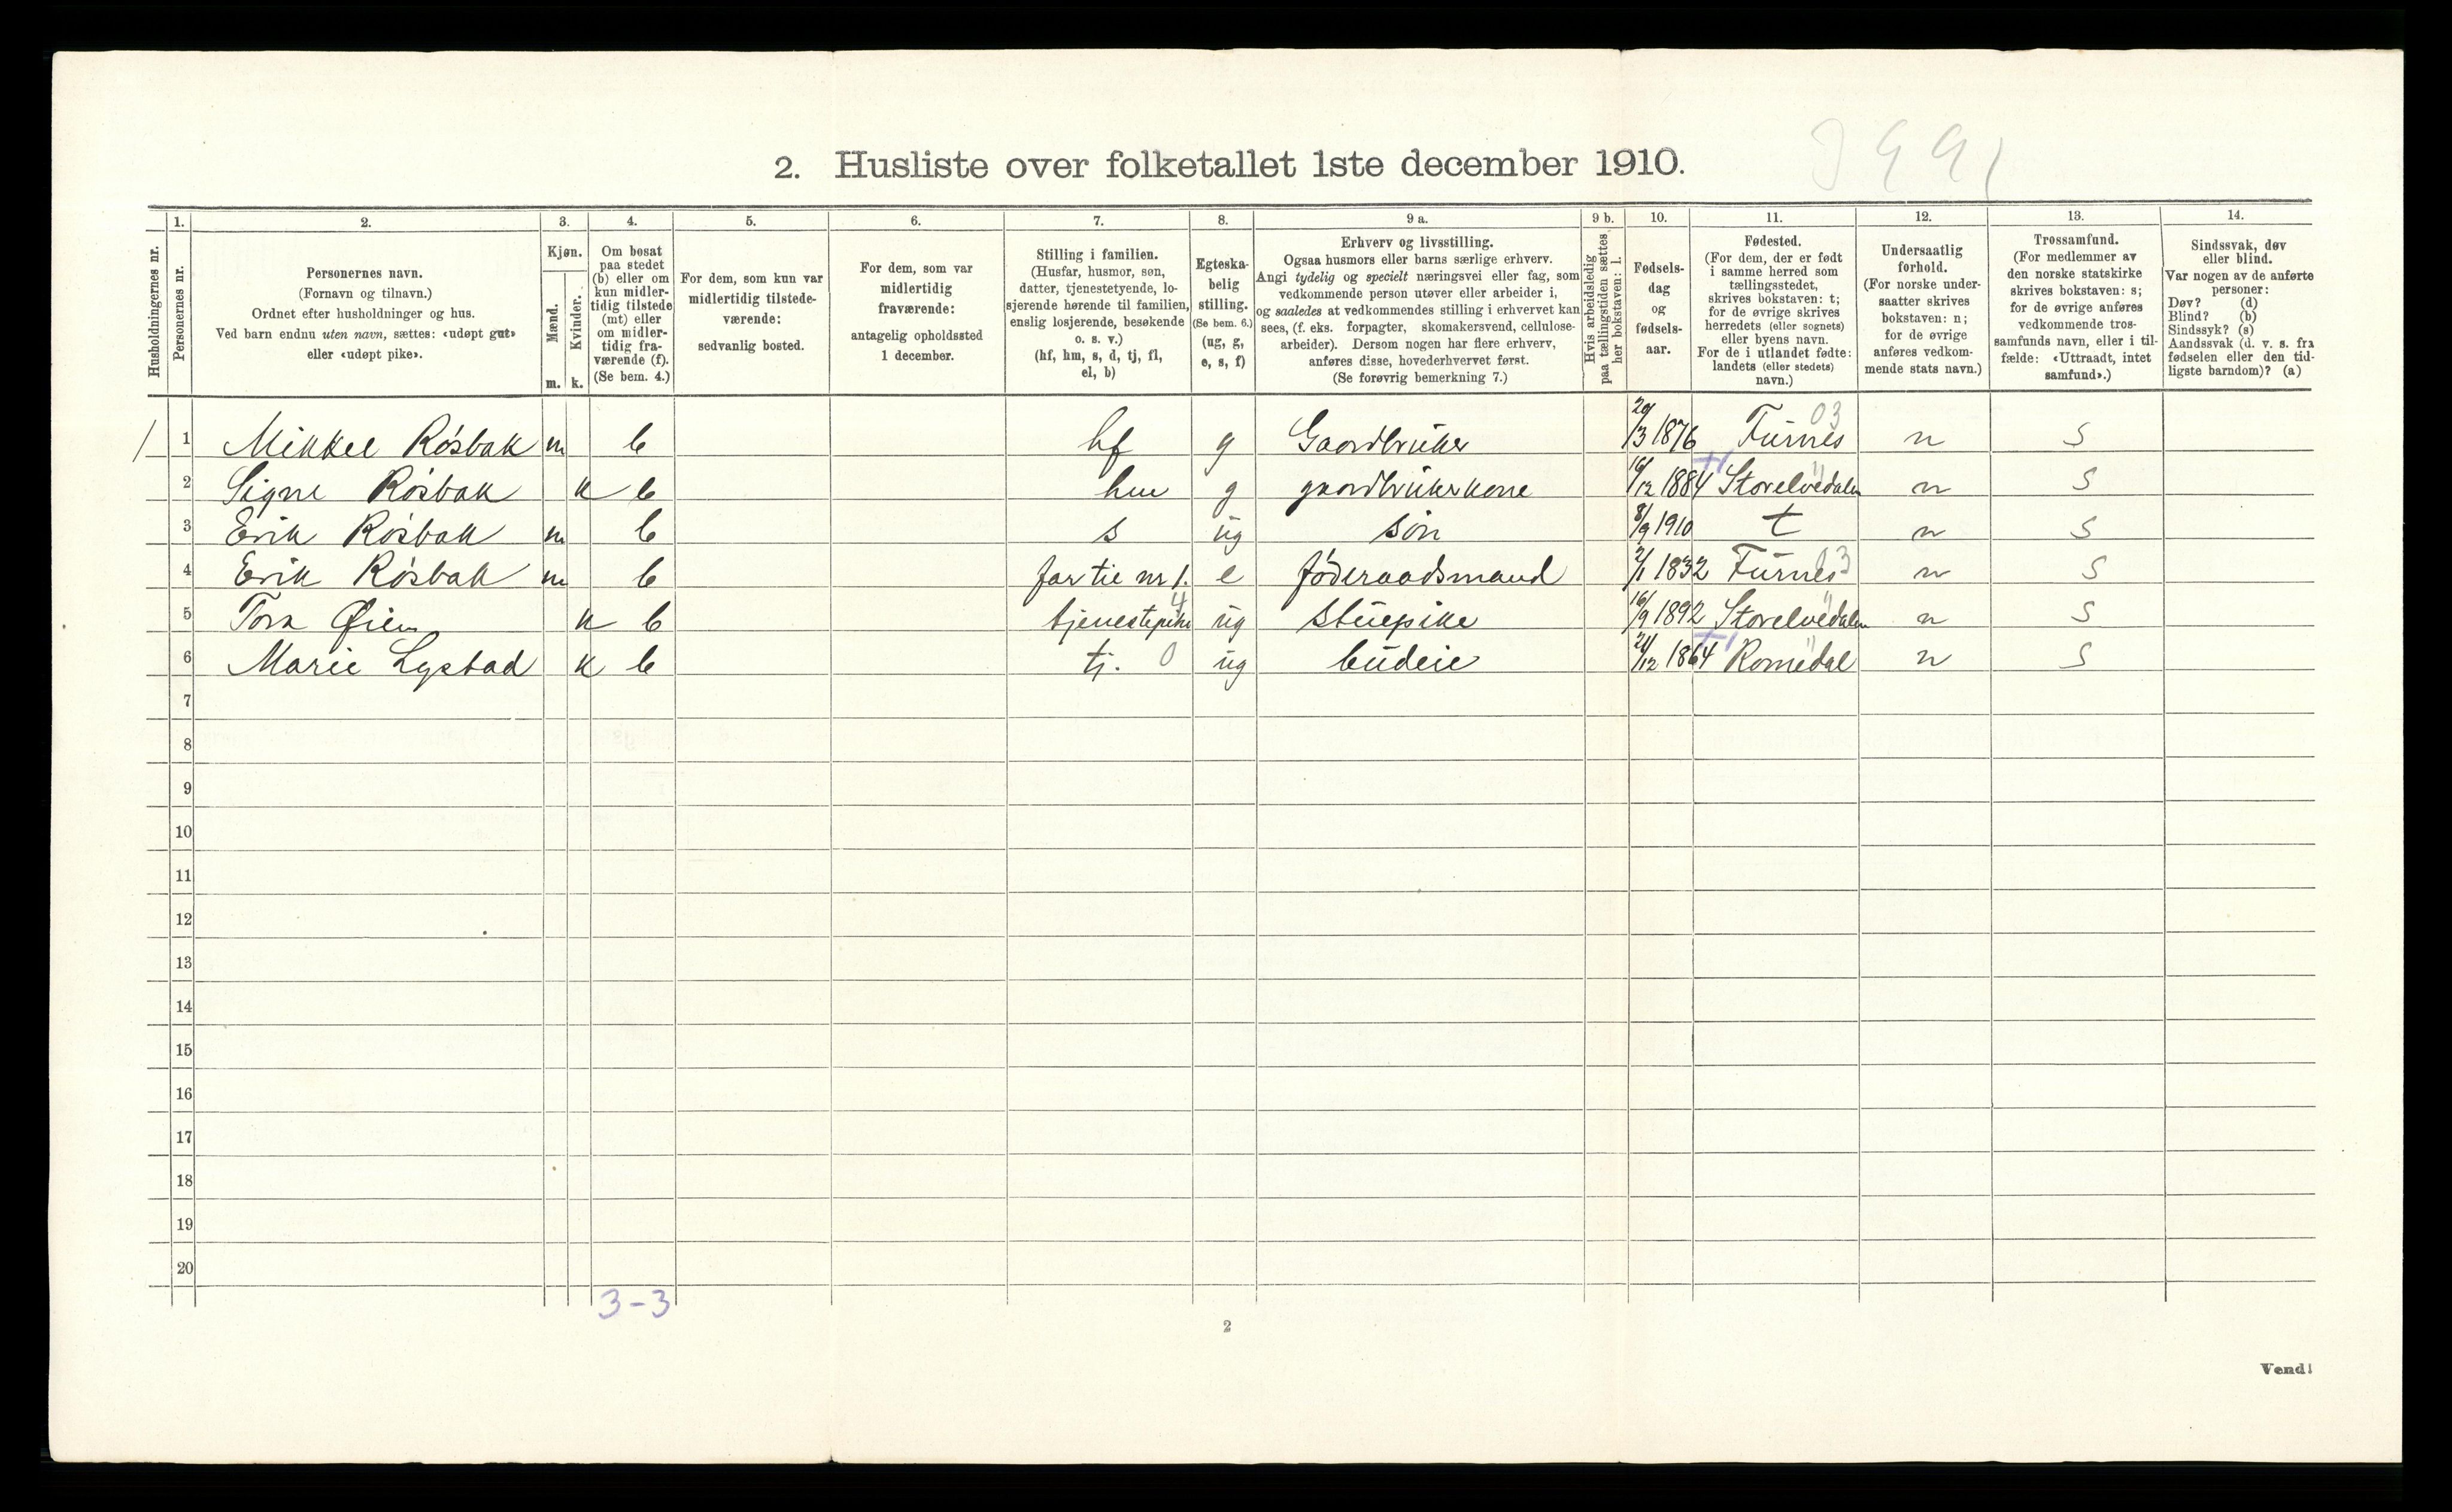 2. Husliste over folketallet 1ste december 1910.
1. 2. 3. 4. 5. 6. 7. 8. 9 a. 9 b. 10. 11. 12. 13. 14.
Husholdningernes nr.
Personernes nr.
Personernes navn.
(Fornavn og tilnavn.)
Ordnet efter husholdninger og hus.
Ved barn endnu uten navn, sættes: «udøpt gut»
eller «udøpt pike».
Kjøn.
Mænd.
Kvinder.
m. k.
Om bosat
paa stedet
(b) eller om
kun midler-
tidig tilstede
(mt) eller
om midler-
tidig fra-
værende (f).
(Se bem. 4.)
For dem, som kun var
midlertidig tilstede-
værende:
sedvanlig bosted.
For dem, som var
midlertidig
fraværende:
antagelig opholdssted
1 december.
Stilling i familien.
(Husfar, husmor, søn,
datter, tjenestetyende, lo-
sjerende hørende til familien,
enslig losjerende, besøkende
o. s. v.)
(hf, hm, s, d, tj, fl,
el, b)
Egteska-
belig
stilling.
(Se bem. 6.)
(ug, g,
e, s, f)
Erhverv og livsstilling.
Ogsaa husmors eller barns særlige erhverv.
Angi tydelig og specielt næringsvei eller fag, som
vedkommende person utøver eller arbeider i,
og saaledes at vedkommendes stilling i erhvervet kan
sees, (f. eks. forpagter, skomakersvend, cellulose-
arbeider). Dersom nogen har flere erhverv,
anføres disse, hovederhvervet først.
(Se forøvrig bemerkning 7.)
Hvis arbeidsledig
paa tællingstiden sættes
her bokstaven: l.
Fødsels-
dag
og
fødsels-
aar.
Fødested.
(For dem, der er født
i samme herred som
tællingsstedet,
skrives bokstaven: t;
for de øvrige skrives
herredets (eller sognets)
eller byens navn.
For de i utlandet fødte:
landets (eller stedets)
navn.)
Undersaatlig
forhold.
(For norske under-
saatter skrives
bokstaven: n;
for de øvrige
anføres vedkom-
mende stats navn.)
Trossamfund.
(For medlemmer av
den norske statskirke
skrives bokstaven: s;
for de øvrige anføres
vedkommende tros-
samfunds navn, eller i til-
fælde: «Uttraadt, intet
samfund».)
Sindssvak, døv
eller blind.
Var nogen av de anførte
personer:
Døv? (d)
Blind? (b)
Sindssyk? (s)
Aandssvak (d. v. s. fra
fødselen eller den tid-
ligste barndom)? (a)
1 Mikkel Røsbak m b hf g Gaardbruker 29/3 1876 Furnes 03 n S
2 Signe Røsbak k b hm g gaardbrukerkone 16/12 1884 Storelvedalen n S
3 Erik Røsbak m b s ug søn 8/9 1910 t n S
4 Erik Røsbak m b far til nr 1. e føderaadsmand 2/1 1832 Furnes 03 n S
5 Tora Øien k b tjenestepike 4 ug Stuepike 16/9 1892 Storelvedalen n S
6 Marie Lystad k b tj. 0 ug budeie 24/12 1864 Romedal n S
7
8
9
10
11
12
13
14
15
16
17
18
19
20
3-3
2
Vend!